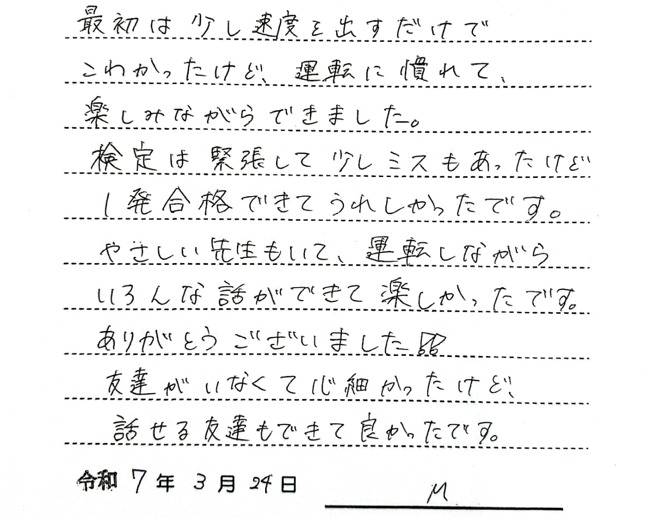 最初は少し速度を出すだけで
こわかったけど、運転に慣れて、
楽しみながらできました。
検定は緊張して少しミスもあったけど
1発合格できてうれしかったです。
やさしい先生もいて、運転しながら
いろんな話ができて楽しかったです。
ありがとうございました
友達がいなくて心細かったけど、
話せる友達もできて良かったです。
令和 7年 3月 24日 M